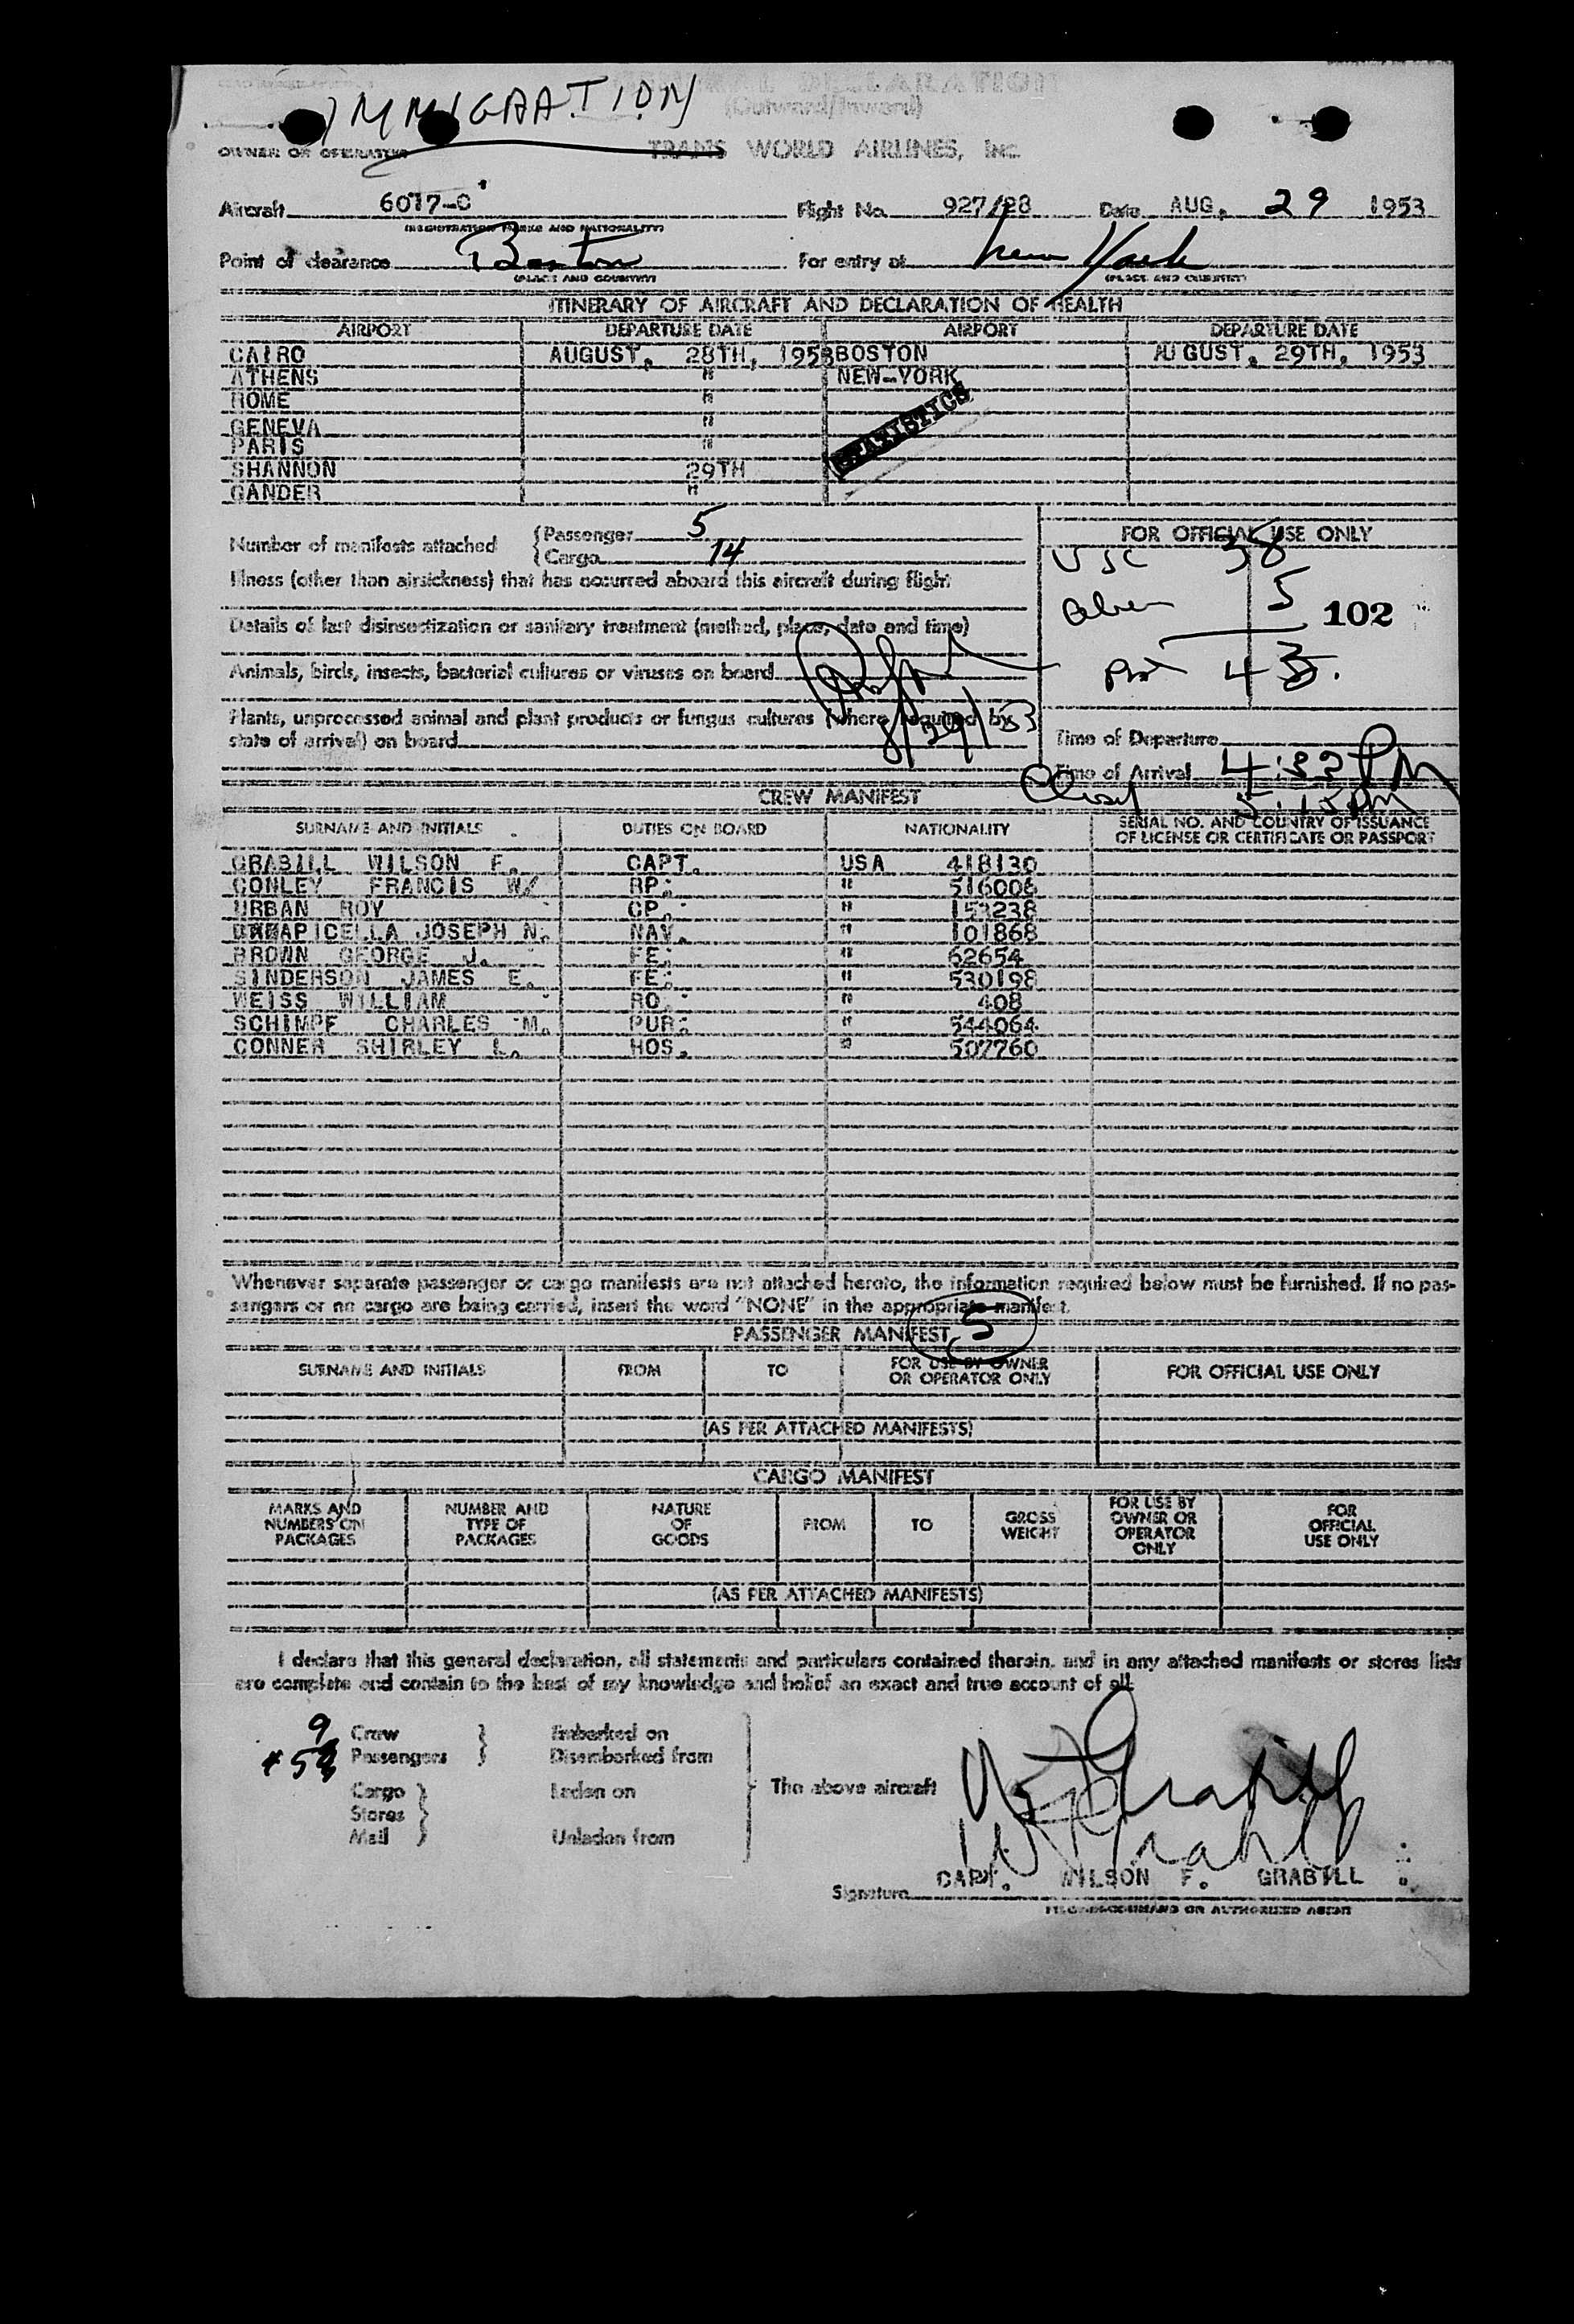 IMMIGRATION
GENERAL DECLARATION
(Outward/Inward)
OWNER OR OPERATOR TRANS WORLD AIRLINES, INC.
Aircraft 6017-C Flight No. 927/28 Date AUG. 29 1953
(REGISTRATION MARKS AND NATIONALITY)
Point of clearance Boston For entry at New York
(PLACE AND COUNTRY) (PLACE AND COUNTRY)
ITINERARY OF AIRCRAFT AND DECLARATION OF HEALTH
AIRPORT DEPARTURE DATE AIRPORT DEPARTURE DATE
CAIRO AUGUST, 28TH, 1953 BOSTON AUGUST, 29TH, 1953
ATHENS " NEW-YORK
ROME "
GENEVA "
PARIS "
SHANNON 29TH
GANDER "
STATISTICS
Number of manifests attached { Passenger 5
{ Cargo 14
Illness (other than airsickness) that has occurred aboard this aircraft during flight
Details of last disinsectization or sanitary treatment (method, place, date and time)
Animals, birds, insects, bacterial cultures or viruses on board
Plants, unprocessed animal and plant products or fungus cultures (where required by
state of arrival) on board
8/29/53
FOR OFFICIAL USE ONLY
USC 38
Alien 5
102
43
Time of Departure
Time of Arrival 4:32 PM
Closed 5:15 PM
CREW MANIFEST
SURNAME AND INITIALS DUTIES ON BOARD NATIONALITY SERIAL NO. AND COUNTRY OF ISSUANCE
OF LICENSE OR CERTIFICATE OR PASSPORT
GRABILL WILSON F. CAPT. USA 418130
CONLEY FRANCIS W/ RP. " 516006
URBAN ROY CP. " 153238
APICELLA JOSEPH N. NAV. " 101868
BROWN GEORGE J. FE. " 62654
SINDERSON JAMES E. FE. " 530198
WEISS WILLIAM RO. " 408
SCHIMPF CHARLES M. PUR. " 544064
CONNER SHIRLEY L. HOS. " 507760
Whenever separate passenger or cargo manifests are not attached hereto, the information required below must be furnished. If no pas-
sengers or no cargo are being carried, insert the word "NONE" in the appropriate manifest.
PASSENGER MANIFEST 5
SURNAME AND INITIALS FROM TO FOR USE BY OWNER
OR OPERATOR ONLY FOR OFFICIAL USE ONLY
(AS PER ATTACHED MANIFESTS)
CARGO MANIFEST
MARKS AND
NUMBERS ON
PACKAGES
NUMBER AND
TYPE OF
PACKAGES
NATURE
OF
GOODS
FROM
TO
GROSS
WEIGHT
FOR USE BY
OWNER OR
OPERATOR
ONLY
FOR
OFFICIAL
USE ONLY
(AS PER ATTACHED MANIFESTS)
I declare that this general declaration, all statements and particulars contained therein, and in any attached manifests or stores lists
are complete and contain to the best of my knowledge and belief an exact and true account of all:
9 Crew } Embarked on
Passengers } Disembarked from
Cargo } Laden on
Stores }
Mail } Unladen from
The above aircraft
W F Grabill
W F Grabill
CAPT. WILSON F. GRABILL
Signature
PILOT-IN-COMMAND OR AUTHORIZED AGENT